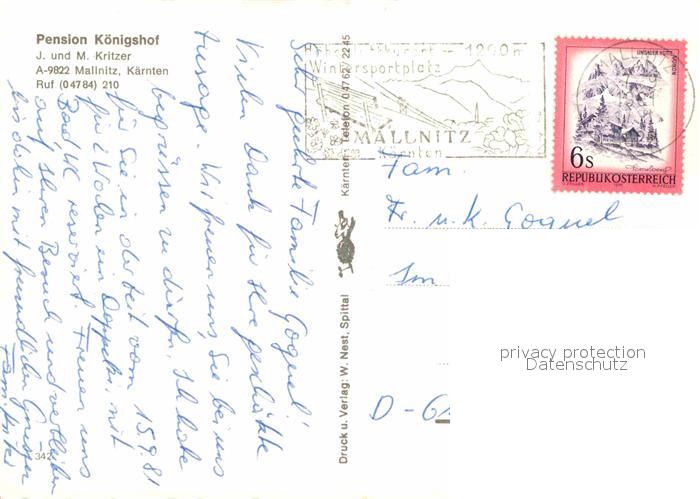 Pension Königshof
J. und M. Kritzer
A-9822 Mallnitz, Kärnten
Ruf (04784) 210
Sehr geehrte Familie Goguel!
Vielen Dank für Ihre geschätzte
Zusage. Wir freuen uns, Sie bei uns
begrüssen zu dürfen. Ich habe
für Sie in der Zeit vom 15.9.81
für 2 Wochen ein Doppelzi. mit
Bad/WC reserviert. Freuen uns
auf Ihren Besuch und verbleiben
bis dahin mit freundlichen Grüßen
Fam. Kritzer
342
Druck u. Verlag: W. Nest, Spittal
Kärnten, Telefon 04762/2245
1200 m
Wintersportplatz
MALLNITZ
Kärnten
6s
REPUBLIK ÖSTERREICH
Fam.
Fr. u. K. Goguel
Im
D - 61
privacy protection
Datenschutz